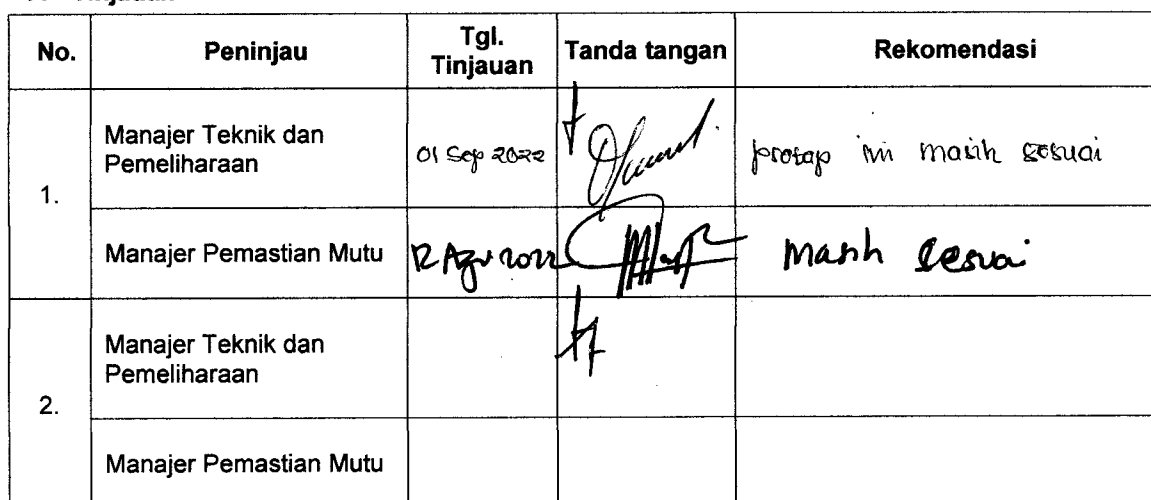 No.
Peninjau
Tgl.
Tinjauan
Tanda tangan
Rekomendasi
1.
Manajer Teknik dan
Pemeliharaan
01 Sep 2022
protap ini masih sesuai
Manajer Pemastian Mutu
12 Agu 2022
masih sesuai
2.
Manajer Teknik dan
Pemeliharaan
Manajer Pemastian Mutu